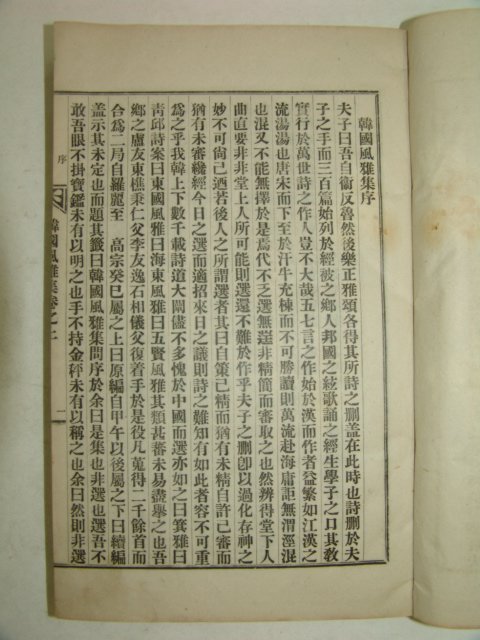 韓國風雅集序
夫子曰吾自衞反魯然後樂正雅頌各得其所詩之刪盖在此時也詩刪於夫
子之手而三百篇始列於經彼之鄉人邦國之絃歌誦之經生學子之口其敎
實行於萬世詩之作人豈不大哉五七言之作始於漢而作者益繁如江漢之
流湯湯也唐宋而下至於汗牛充棟而不可勝讀則萬流赴海庸詎無渭涇混
也混又不能無擇於是焉代不乏選無選非精簡而審取之也然辨得堂下人
曲直要非非堂上人所可能則選還不難於作乎夫子之刪卽以過化存神之
妙不可尙已洒若後人之所謂選者其曰自策已精而猶有未精自許已審而
猶有未審纔經今日之選而適招來日之議則詩之難知有如此者容不可重
爲之乎我韓上下數千載詩道大闡儘不多愧於中國而選亦如之曰箕雅曰
靑邱詩案曰東國風雅曰海東風雅曰五賢風雅其類甚蕃未易盡擧之也吾
鄕之盧友東樵秉仁父李友逸石相儀父復着手於是役凡蒐得二千餘首而
合爲二局自羅麗至 高宗癸巳屬之上曰原編自甲午以後屬之下曰續編
盖示其未定也而題其籤曰韓國風雅集問序於余曰是集也非選也選吾不
敢吾眼不掛寶鑑未有以明之也手不持金秤未有以稱之也余曰然則非選
序
韓國風雅集卷之上
一